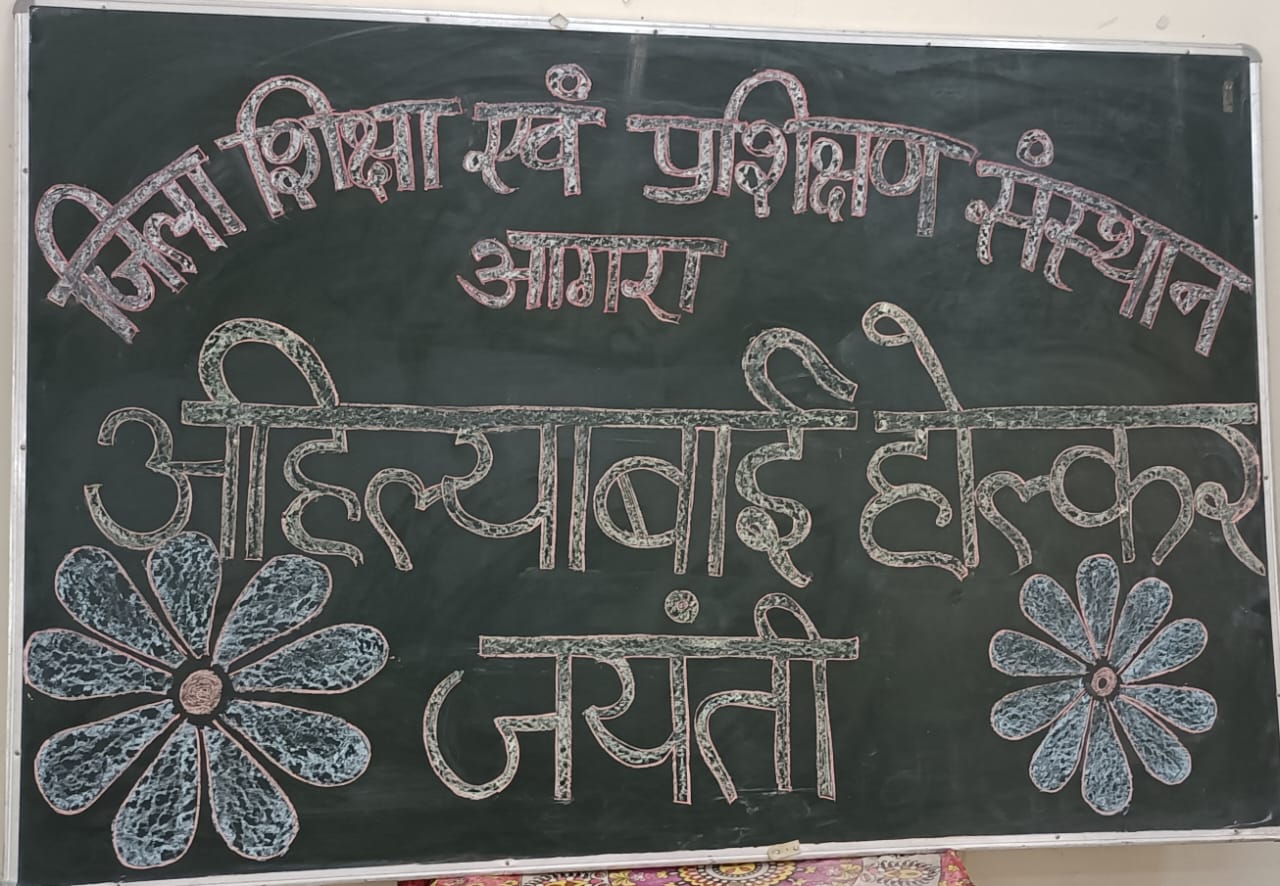 जिला शिक्षा एवं प्रशिक्षण संस्थान
आगरा
अहिल्याबाई होल्कर
जयंती